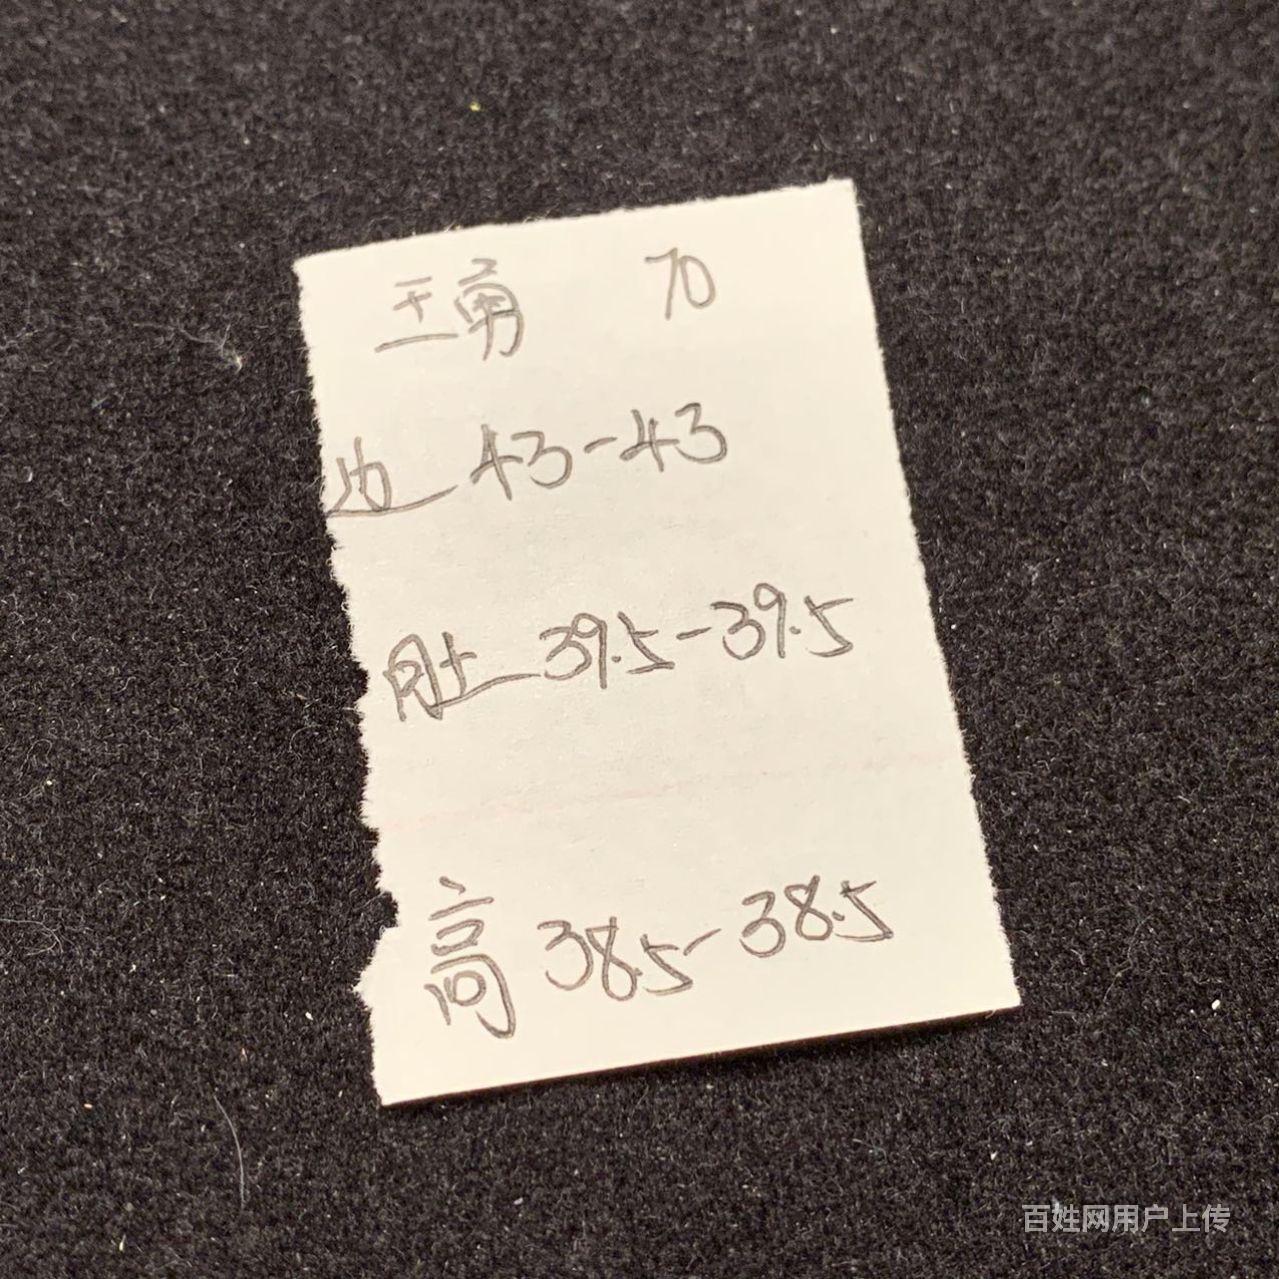 王勇 70
边 43-43
肚 39.5-39.5
高 38.5-38.5
百姓网用户上传